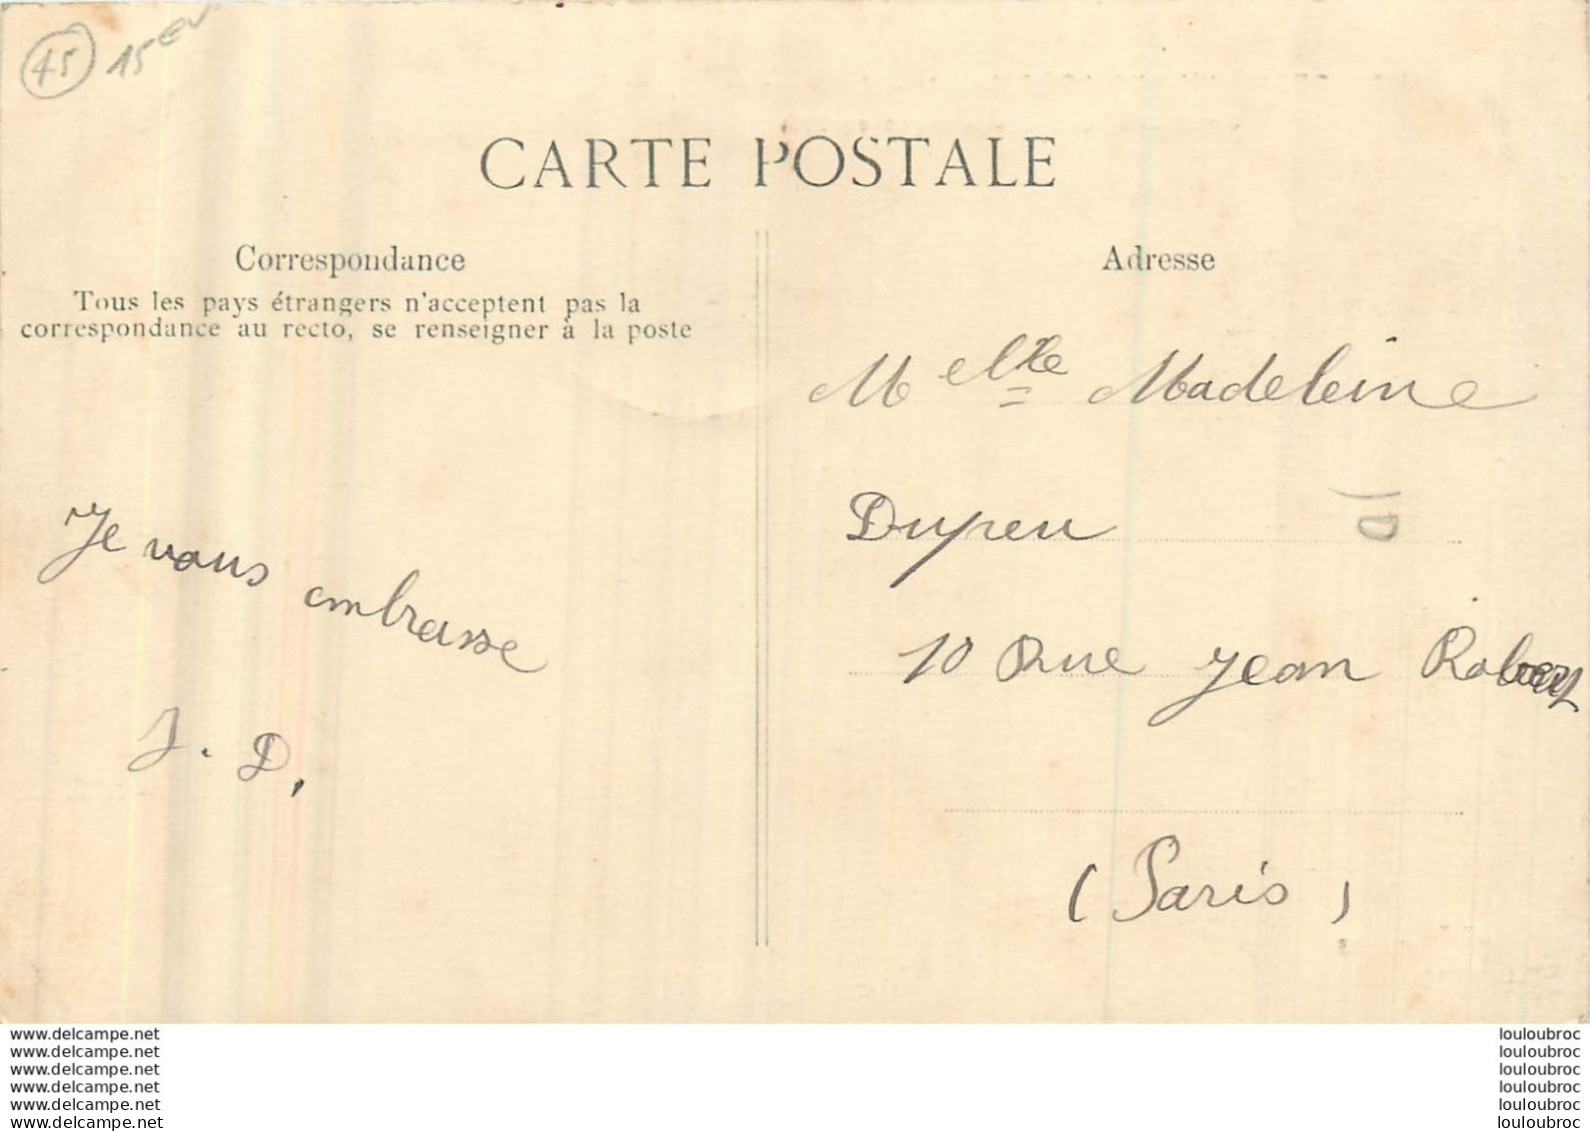 45 15 eu
CARTE POSTALE
Correspondance
Tous les pays étrangers n'acceptent pas la
correspondance au recto, se renseigner à la poste
Je vous embrasse
J. D.
Adresse
Melle Madeleine
Dupeu
10 Rue Jean Robert
(Paris)
www.delcampe.net
www.delcampe.net
www.delcampe.net
www.delcampe.net
www.delcampe.net
www.delcampe.net
louloubroc
louloubroc
louloubroc
louloubroc
louloubroc
louloubroc